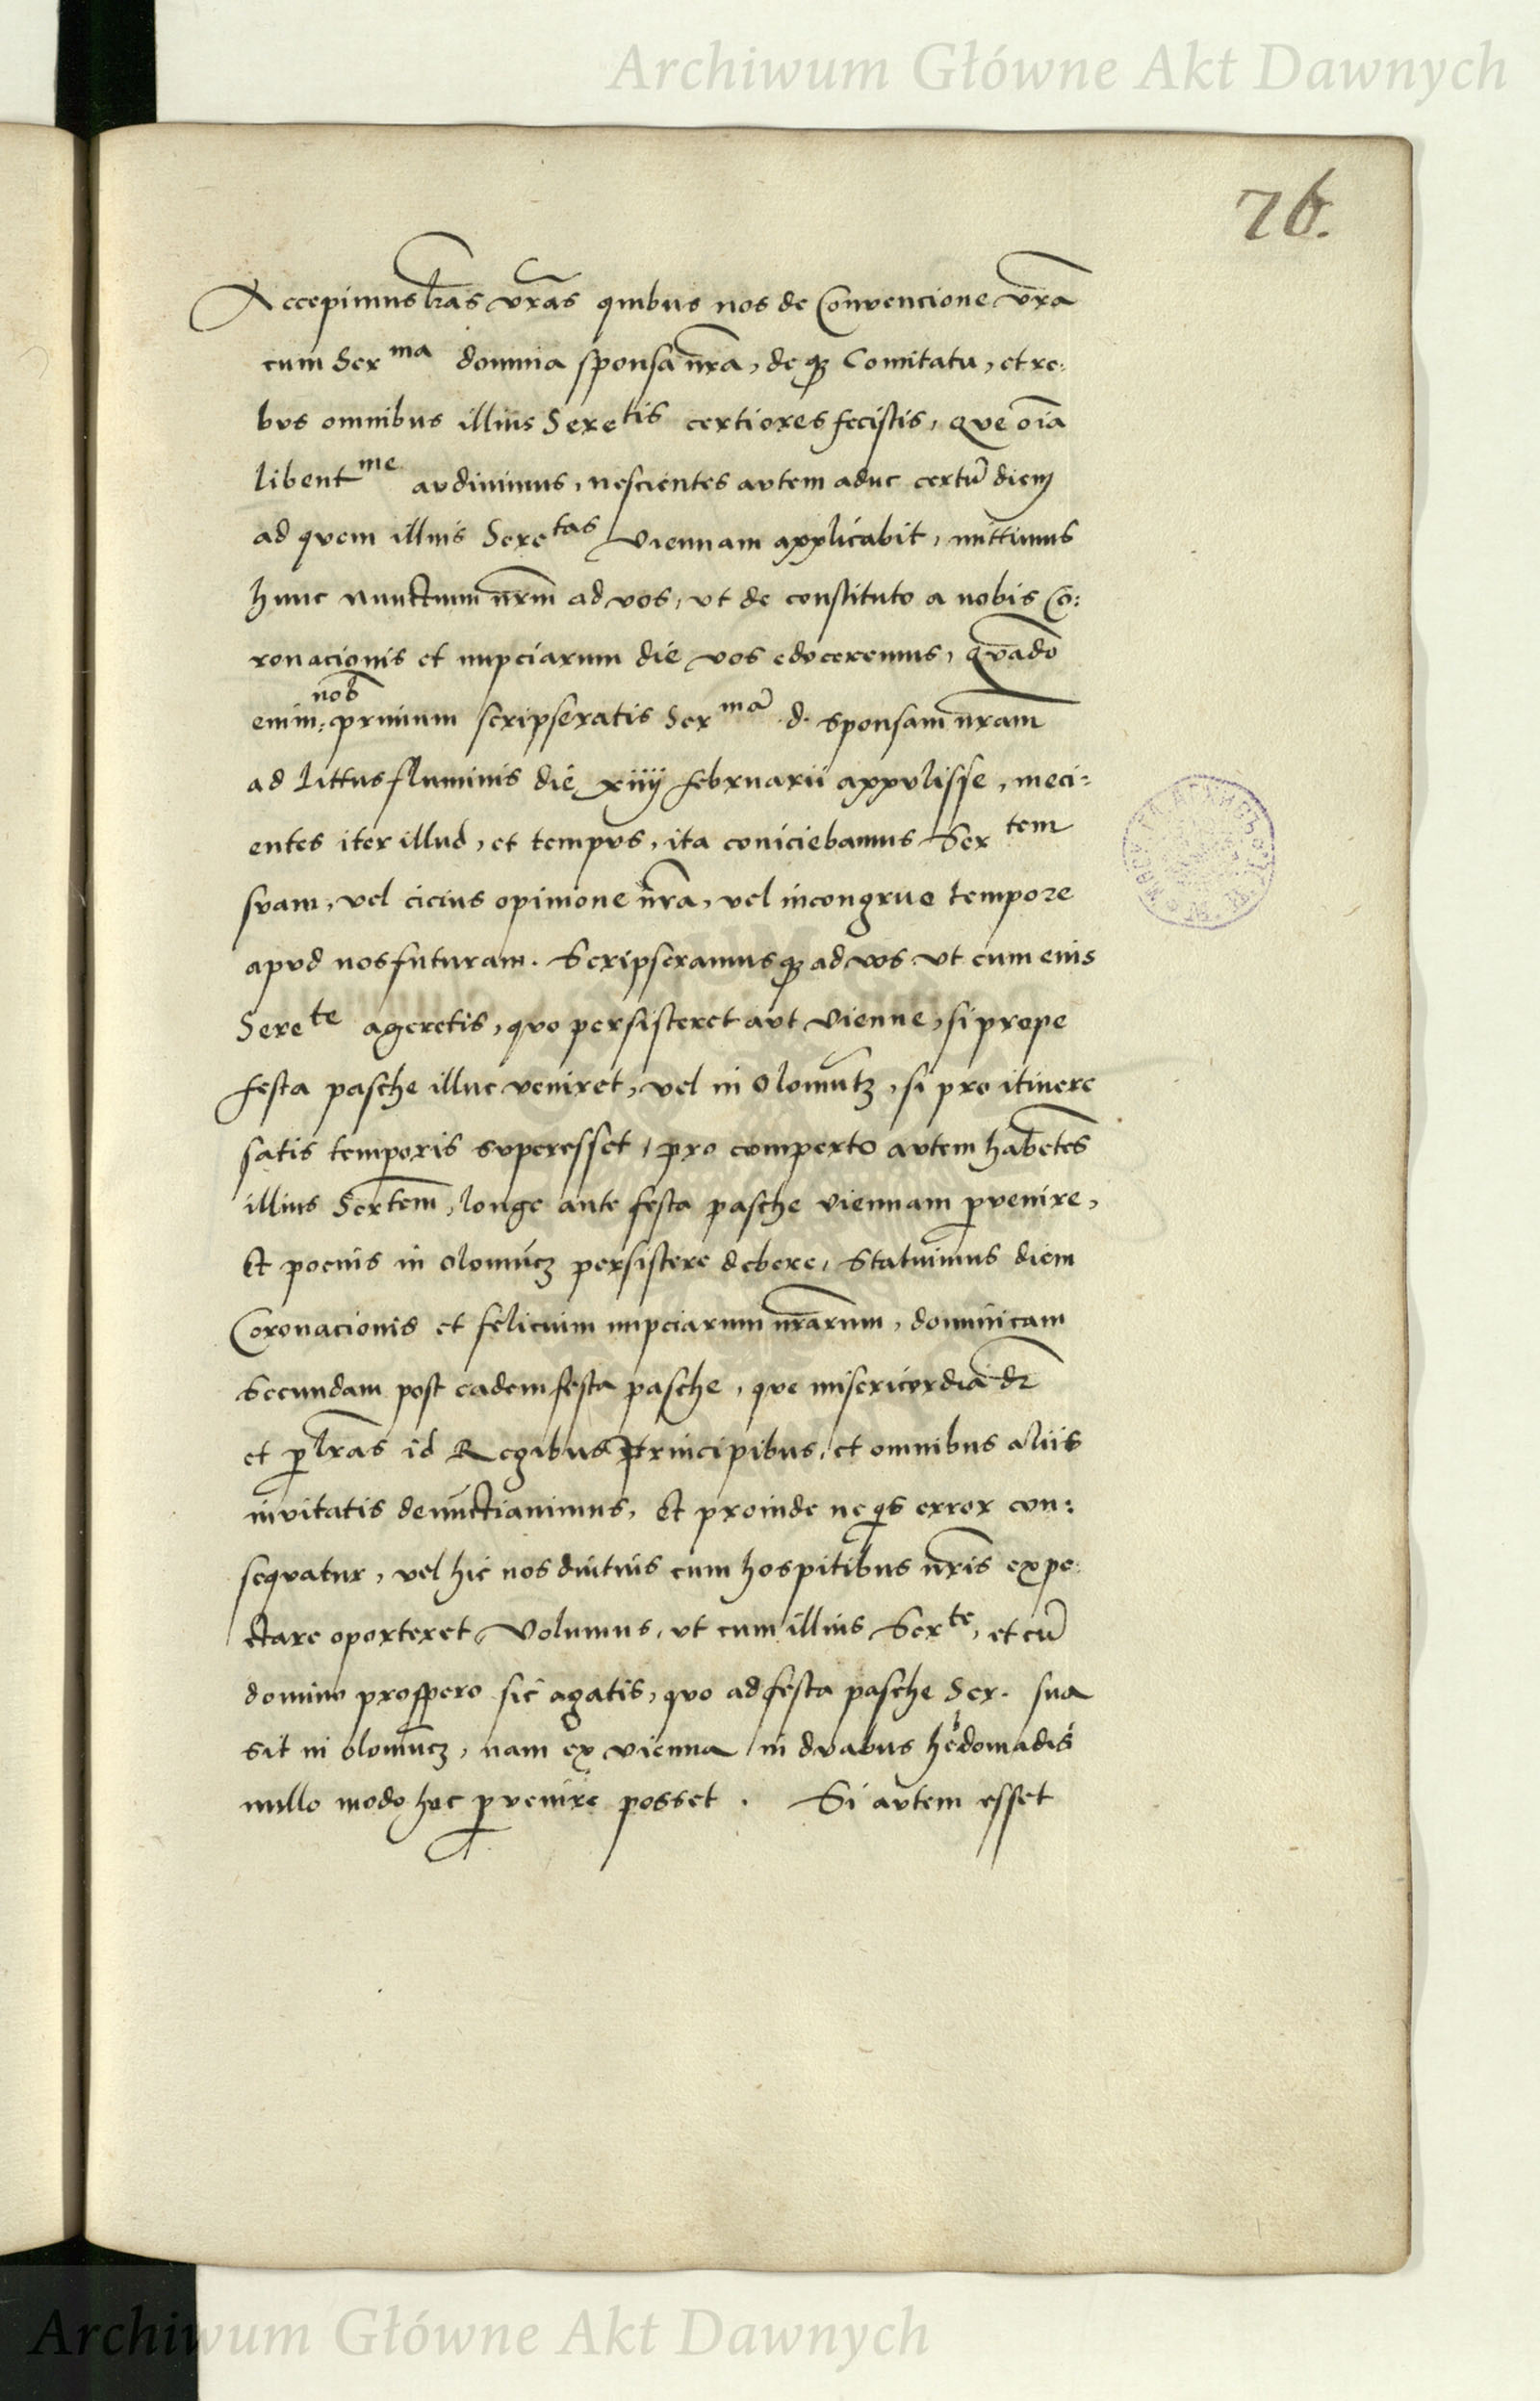 Archiwum Główne Akt Dawnych
76.
Accepimus lras vras quibus nos de Convencione vra
cum Ser ma domina sponsa nra, deq Comitatu, et re:
bus omnibus illius Sere tis certiores fecistis, que oia
libent me audivimus, nescientes autem aduc certu diem
ad quem illius Sere tas Viennam applicabit, mittimus
hunc nunctium nrm ad vos, ut de constituto a nobis Co:
ronacionis et nupciarum die vos edoceremus, quado
nob
enim: primum scripseratis Ser ma d. sponsam nram
ad littus fluminis die xiiij februarii appulisse, meci=
entes iter illud, et tempus, ita coniciebamus Ser tem
suam, vel cicius opinione nra, vel incongruo tempore
apud nos futuram. Scripseramusq ad vos ut cum eius
Sere te ageretis, quo persisteret aut Vienne, si prope
festa pasche illuc veniret, vel in Olomutz, si pro itinere
satis temporis superesset, pro comperto autem habetes
illius Sertem, longe ante festa pasche viennam pvenire,
Et pocius in olomucz persistere debere, Statuimus diem
Coronacionis et felicium nupciarum nrarum, dominicam
Secundam post eadem festa pasche, que misericordia dr
et p lras id Regibus Principibus, et omnibus aliis
invitatis denunctiavimus, Et proinde ne qs error con:
sequatur, vel hic nos diutius cum hospitibus nris expe:
ctare oporteret Volumus, ut cum illius Ser te, et cu
domino prospero sic agatis, quo ad festa pasche Ser. sua
sit in olomucz, nam ex vienna in duabus hebdomadis
nullo modo huc pvenire posset. Si autem esset
Archiwum Główne Akt Dawnych